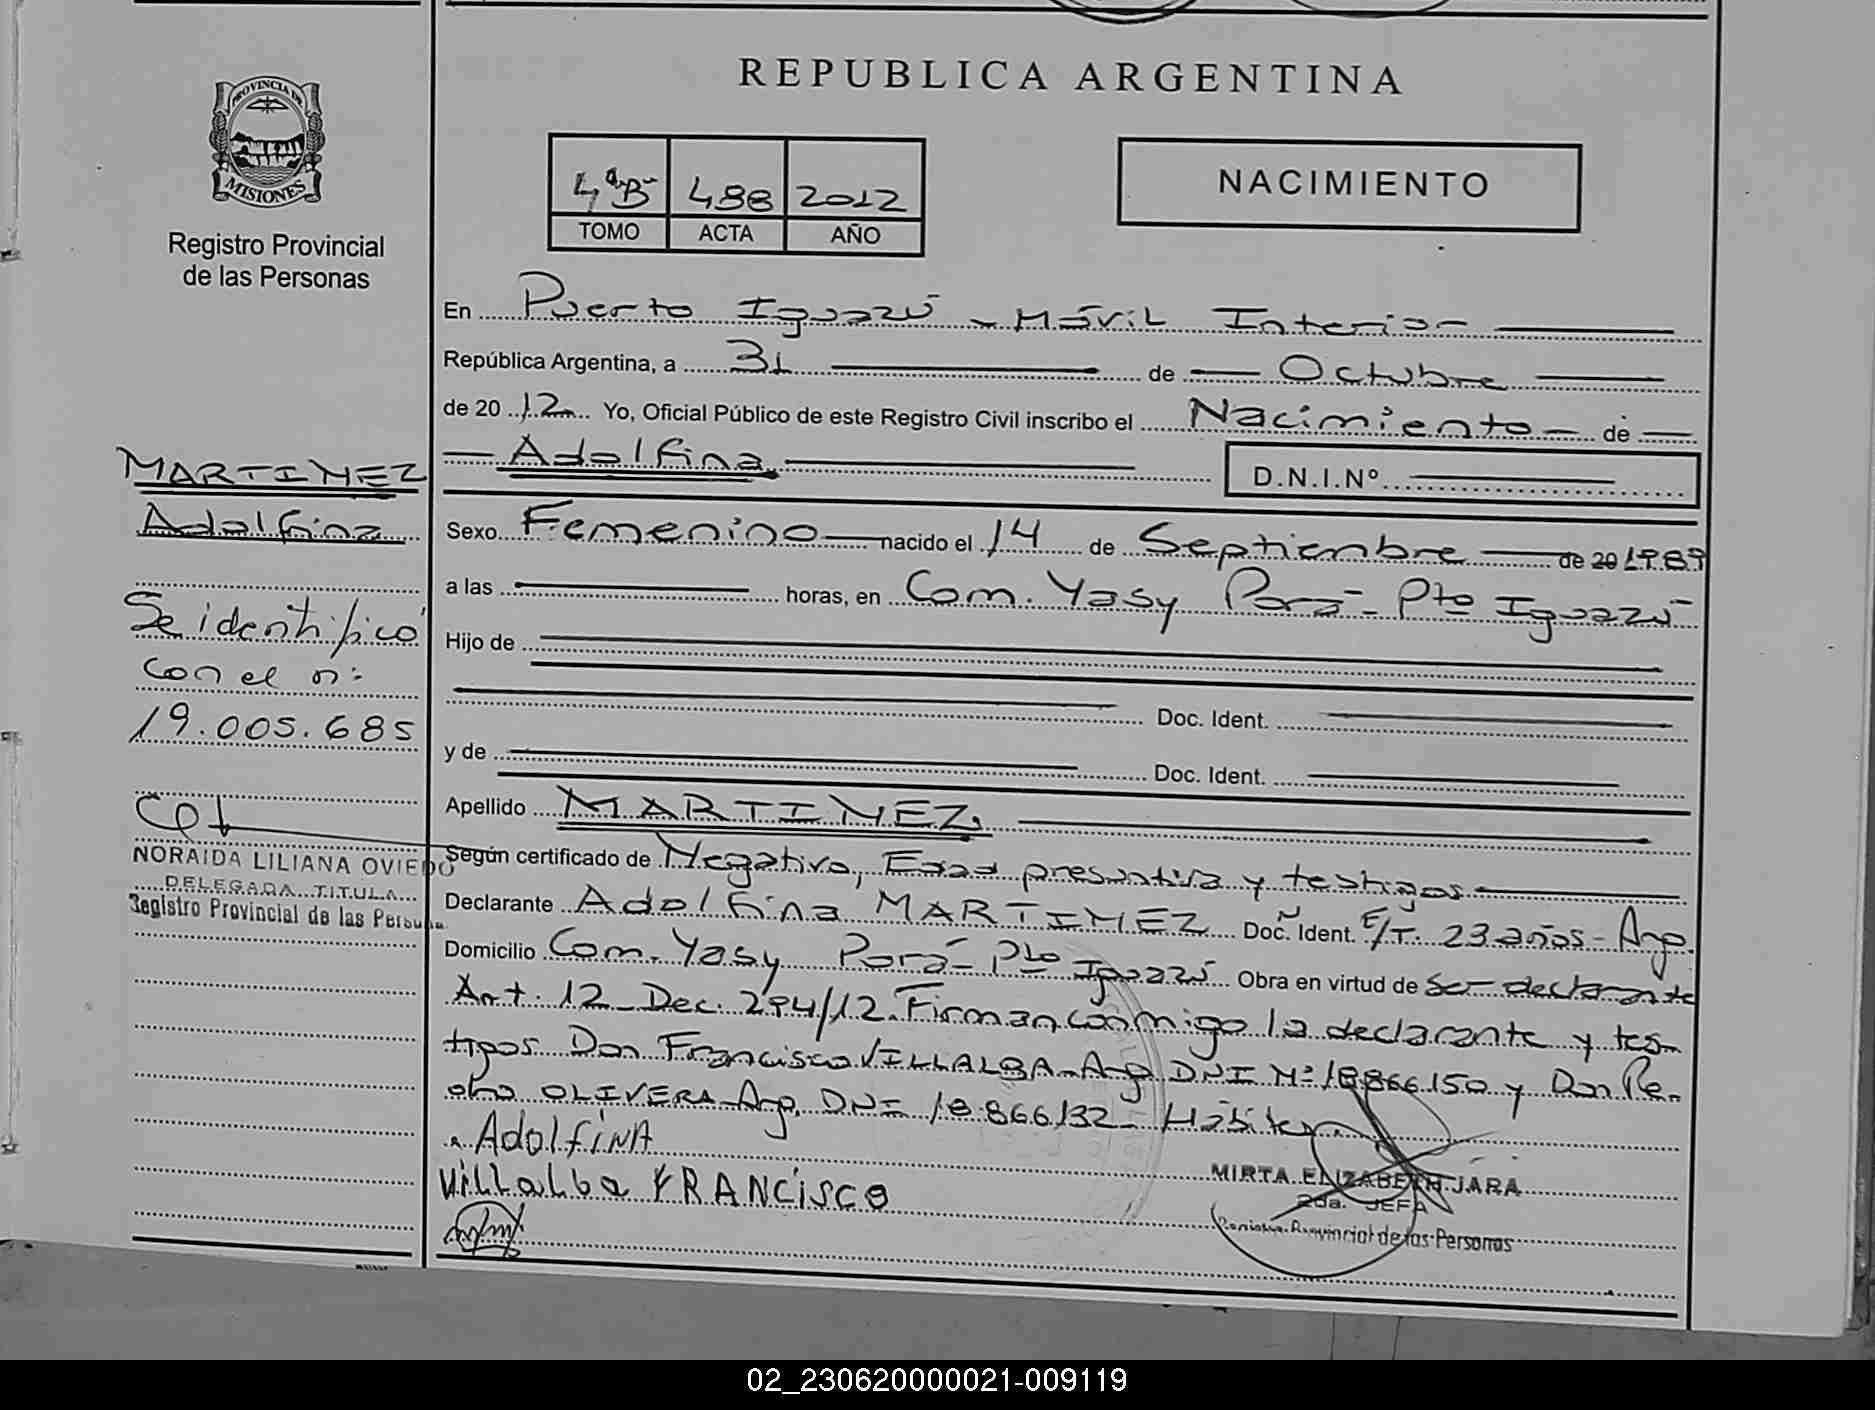 REPUBLICA ARGENTINA
PROVINCIA DE
MISIONES
Registro Provincial
de las Personas
4ª B- 488 2012
TOMO ACTA AÑO
NACIMIENTO
En Puerto Iguazú - Móvil Interior
República Argentina, a 31 de Octubre
de 2012 Yo, Oficial Público de este Registro Civil inscribo el Nacimiento de
Adolfina
D.N.I.Nº
MARTINEZ
Adolfina
Se identificó
con el nº
19.005.685
NORAIDA LILIANA OVIEDO
DELEGADA TITULA
Registro Provincial de las Persona
Sexo Femenino nacido el 14 de Septiembre de 20 1989
a las horas, en Com. Yasy Porá - Pto Iguazú
Hijo de
Doc. Ident.
y de Doc. Ident.
Apellido MARTINEZ
Según certificado de Negativo, Edad presuntiva y testigos
Declarante Adolfina MARTINEZ Doc. Ident. E/T. 23 años - Arg.
Domicilio Com. Yasy Porá - Pto Iguazú Obra en virtud de Ser declarante
Art. 12 - Dec. 294/12. Firman conmigo la declarante y tes-
tigos Don Francisco VILLALBA - Arg DNI Nº 18866.150 y Don Pe-
dro OLIVERA - Arg. DNI 18.866132 - Hábiles
Adolfina
Villalba FRANCisco
MIRTA ELIZABETH JARA
2da. JEFA
Registro Provincial de las Personas
02_230620000021-009119